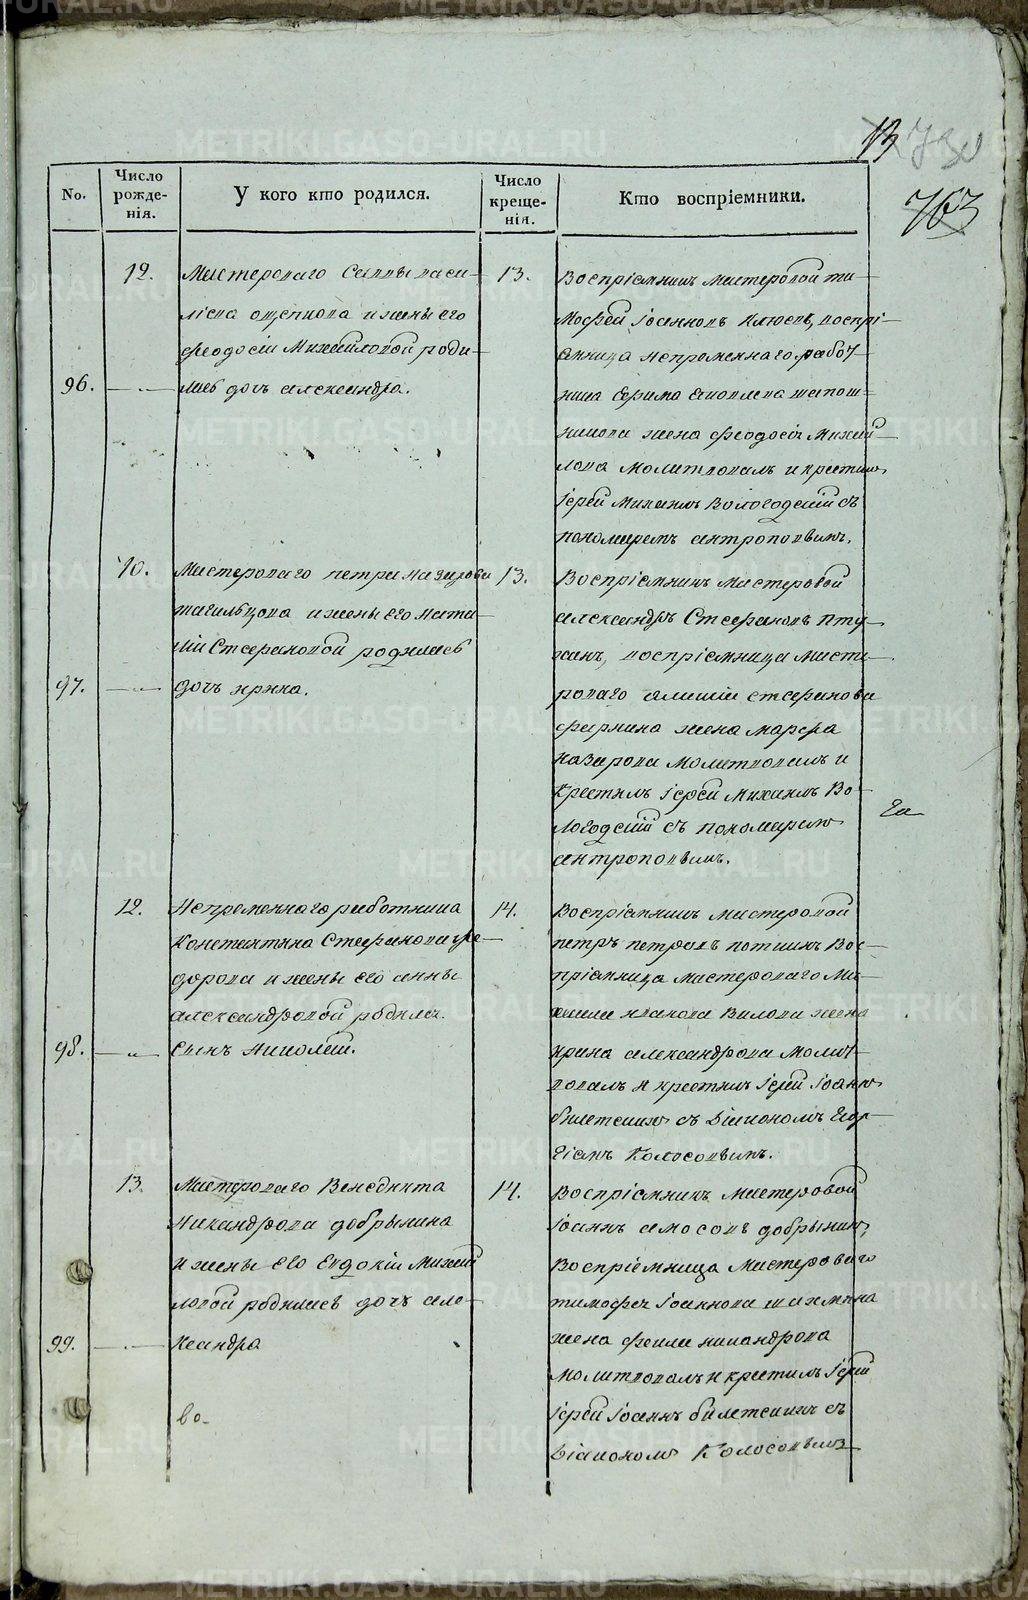 13 730
763
No.
Число рожде-нія.
У кого кто родился.
Число креще-нія.
Кто воспріемники.
12.
Мастероваго Саввы Васи-
лієва ощепкова и жены его
феодосіи Михайловой роди-
96.
лась дочь александра.
13.
Воспріемникъ мастеровой ти-
мофей Іоанновъ Клюевъ, воспрі-
емница непременнаго работ-
ника Ефима
жена феодосія Михай-
лова Молитвовалъ и крестилъ
Іерей Михаилъ Вологодскій съ
пономаремъ антроповымъ.
10.
Мастероваго петра назарова
тагильцова и жены его ната-
ліи Стефановой родилась
97.
дочь ирина.
13.
Воспріемникъ мастеровой
александръ Стефановъ пту-
хинъ, воспріемница масте-
роваго стефанова
жена марфа
назарова молитвовалъ и
крестилъ Іерей Михаилъ Во-
логодскій съ пономаремъ
антроповымъ.
12.
Непременнаго работника
Константина Стефанова фе-
дорова и жены его анны
александровой родился
98.
сынъ Николай.
14.
Воспріемникъ мастеровой
петръ петровъ Вос-
пріемница мастероваго Ми-
хаила иванова Вилова жена
ирина александрова молит-
вовалъ и крестилъ Іерей Іоаннъ
билетскихъ съ Діакономъ Геор-
гіемъ Колосовымъ.
13.
Мастероваго Венедикта
Никандрова добрынина
и жены его Евдокіи Михай
ловой родилась дочь але-
99.
ксандра
14.
Воспріемникъ Мастеровой
Іоаннъ амосовъ добрынинъ,
Воспріемница Мастероваго
тимофея Іоаннова шахмина
жена никандрова
молитвовалъ и крестилъ Іерей
Іерей Іоаннъ билетскихъ съ
Діакономъ Колосовымъ
во-
METRIKI.GASO-URAL.RU